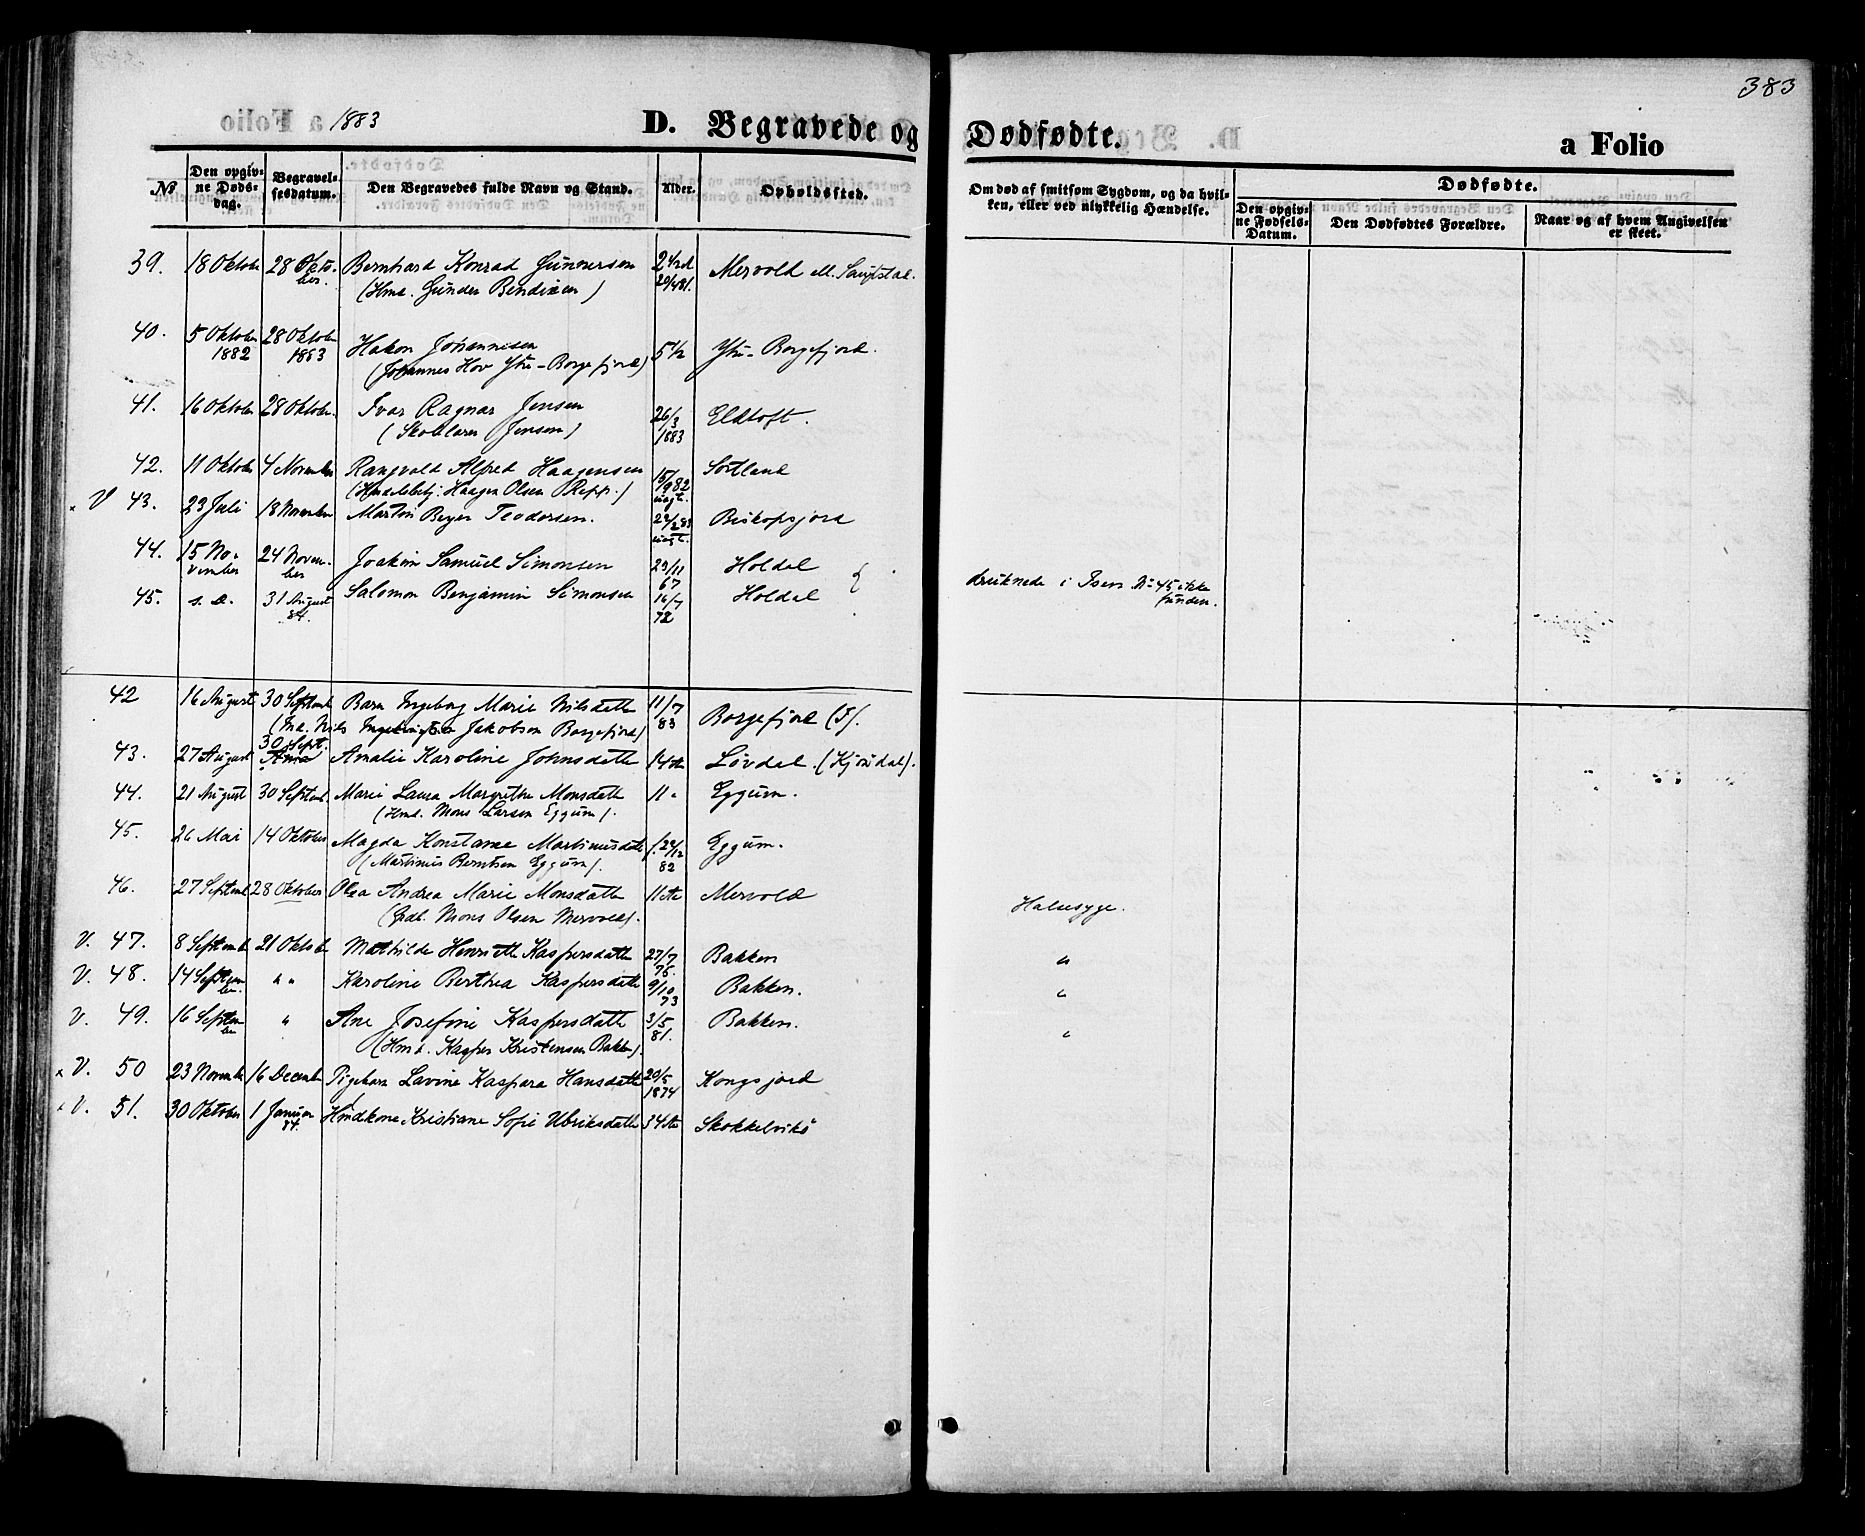 383
1883 D. Begravede og Dødfødte. a Folio
No Den opgivne Dødsdag. Begravelsesdatum. Den Begravedes fulde Navn og Stand. Alder. Opholdssted. Om død af smitsom Sygdom, og da hvilken, eller ved ulykkelig Hændelse. Dødfødte. Den opgivne Fødsels-Datum. Den Dødfødtes Forældre. Naar og af hvem Angivelsen er skeet.
39. 18 Oktober 28 Oktober. Bernhard Konrad Gunnersen Mervold
(Hmd. Gunder Bendixen)
40. 5 Oktober 1882 28 Oktober 1883 Hakon Johannesen 5 1/2 Ytre-Borgefjord.
(Johannes Hov Ytre-Borgefjord)
41. 16 Oktober 28 Oktober. Ivar Ragnar Jensen 26/3 1883 Eldtoft.
(Skolelærer Jensen)
42. 11 Oktober 4 November Rangvald Alfred Haagensen 15/9 82 Sortland
(Haagen Olsen Repp.)
V 43. 23 Juli 18 November Martin Beyer Teodorsen. Biskopsjord
44. 15 November 24 November Joakim Samuel Simonsen 29/11 67 Holdal
45. s. d. 31 August 84. Salomon Benjamin Simonsen 16/7 72 Holdal druknede i Isen No 45 ikke funden.
42 16 August 30 Septemb Barn Ingeborg Marie Nilsdatter 11/7 83 Borgefjord (I).
(Nils Jakobsen Borgefjord)
43. 27 August 30 Sept. Amalie Karoline Johnsdatter 14 Løvdal.
44. 21 August 30 Septemb. Marie Laura Margrethe Monsdatter 11 Eggum.
(Hmd. Mons Larsen Eggum).
45. 26 Mai 14 Oktober Magda Konstanse Martinusdatter f. 82 Eggum.
(Martinus Berntsen Eggum).
46. 27 Septemb 28 Oktober Olea Andrea Marie Monsdatter 11 Mervold Halssyge.
(Mons Olsen Mervold).
V. 47. 8 Septemb 21 Oktob Mathilde Henriette Kaspersdatter 27/7 75. Bakken "
V. 48. 14 September. " " Karoline Berthea Kaspersdatter 9/10 73 Bakken. "
V. 49. 16 September " Ane Josefine Kaspersdatter 3/5 81. Bakken. "
(Hmd. Kasper Kristensen Bakken).
× V. 50 23 November 16 December Pigebarn Lavine Kaspara Hansdatter 20/5 1874 Kongsjord
V. 51. 30 Oktober 1 Januar 84. Hmdkone Kristiane Sofie Ulriksdatter 34 Skokkelvik